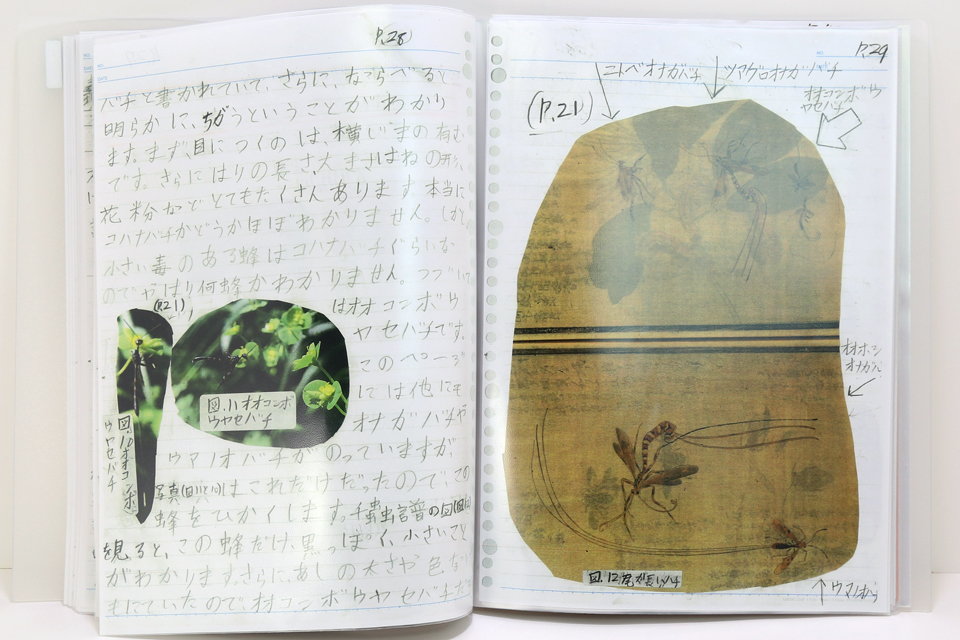 P.28
バチと書かれていて、さらに、ならべると
明らかに、ちがうということがわかり
ます。まず、目につくのは、横じまの有む
です。さらにはりの長さ、大きさはねの形、
花粉などとてもたくさんあります。本当に
コハナバチかどうかほぼわかりません。しかも
小さい毒のある蜂はコハナバチぐらいな
のでやはり何蜂かわかりません。つづいて
(P.21)
はオオコンボウ
ヤセバチです。
このページ
には他にも
オナガバチや
ウマノオバチがのっていますが、
写真はこれだけだったので、この
蜂をひかくします。千蟲譜の図
を見ると、この蜂だけ、黒っぽく、小さいこと
がわかります。さらに、あしの太さや色な
もにていたので、オオコンボウヤセバチだ
図.10オオコンボ
ウヤセバチ
図.11オオコンボ
ウヤセバチ
P.29
ニトベオナガバチ
ツマグロオナガバチ
オオコンボウ
ヤセバチ
(P.21)
オオホシ
オナガバ
図.12尾が長いハチ
ウマノオバチ